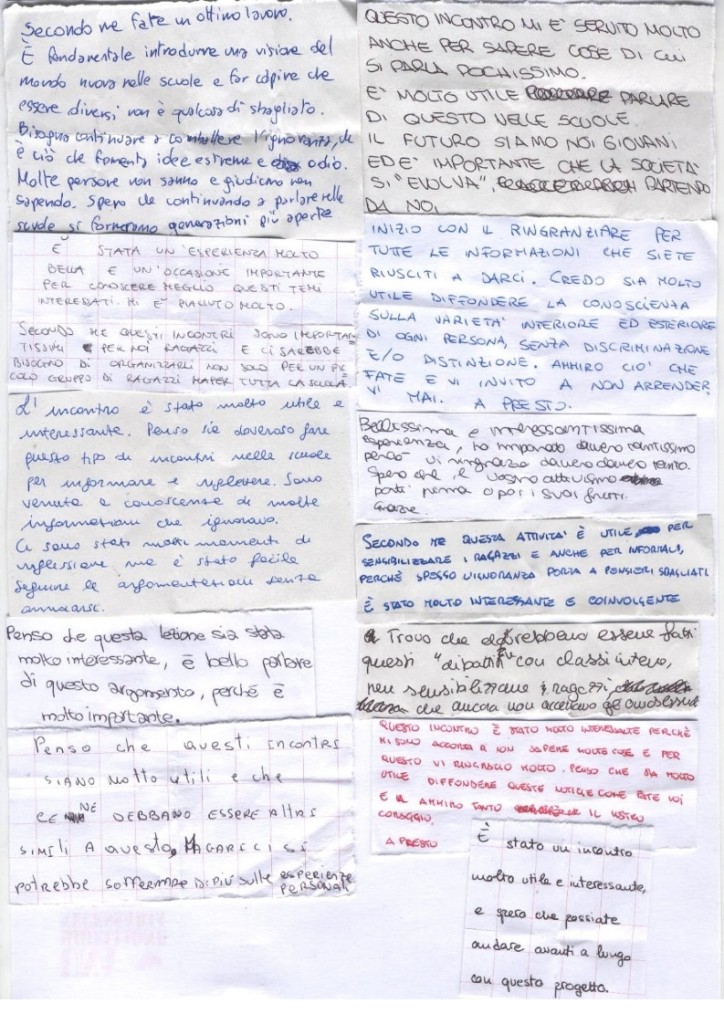 Secondo me fate un ottimo lavoro.
È fondamentale introdurre una visione del
mondo nuova nelle scuole e far capire che
essere diversi non è qualcosa di sbagliato.
Bisogna continuare a combattere l'ignoranza, che
è ciò che fomenta idee estreme e odio.
Molte persone non sanno e giudicano non
sapendo. Spero che continuando a parlare nelle
scuole si formeranno generazioni più aperte
È STATA UN'ESPERIENZA MOLTO
BELLA E UN'OCCASIONE IMPORTANTE
PER CONOSCERE MEGLIO QUESTI TEMI
INTERESSATI. MI È PIACIUTO MOLTO.
SECONDO ME QUESTI INCONTRI SONO IMPORTAN
TISSIMI PER NOI RAGAZZI E CI SAREBBE
BISOGNO DI ORGANIZZARLI NON SOLO PER UN PIC
COLO GRUPPO DI RAGAZZI MA PER TUTTA LA SCUOLA.
L'incontro è stato molto utile e
interessante. Penso sia doveroso fare
questo tipo di incontri nelle scuole
per informare e riflettere. Sono
venuta a conoscenza di molte
informazioni che ignoravo.
Ci sono stati molti momenti di
riflessione ma è stato facile
seguire le argomentazioni senza
annoiarsi.
Penso che questa lezione sia stata
molto interessante, è bello parlare
di questo argomento, perché è
molto importante.
Penso che questi incontri
SIANO MOLTO UTILI E CHE
CE NE DEBBANO ESSERE ALTRI
SIMILI A QUESTO, MAGARI CI SI
POTREBBE SOFFERMARE DI PIÙ SULLE ESPERIENZE
PERSONALI
QUESTO INCONTRO MI E' SERVITO MOLTO
ANCHE PER SAPERE COSE DI CUI
SI PARLA POCHISSIMO.
E' MOLTO UTILE PARLARE
DI QUESTO NELLE SCUOLE.
IL FUTURO SIAMO NOI GIOVANI
ED E' IMPORTANTE CHE LA SOCIETA'
SI "EVOLVA", PARTENDO
DA NOI
INIZIO CON IL RINGRANZIARE PER
TUTTE LE INFORMAZIONI CHE SIETE
RIUSCITI A DARCI. CREDO SIA MOLTO
UTILE DIFFONDERE LA CONOSCIENZA
SULLA VARIETA' INTERIORE ED ESTERIORE
DI OGNI PERSONA, SENZA DISCRIMINAZIONE
E/O DISTINZIONE. AMMIRO CIO' CHE
FATE E VI INVITO A NON ARRENDER
VI MAI. A PRESTO.
Bellissima e interessantissima
esperienza, ho imparato davvero tantissimo
perciò vi ringrazio davvero davvero tanto.
Spero che il vostro attivismo
porti prima o poi i suoi frutti.
Grazie.
SECONDO ME QUESTA ATTIVITA' È UTILE PER
SENSIBILIZZARE I RAGAZZI E ANCHE PER INFORMALI,
PERCHÈ SPESSO L'IGNORANZA PORTA A PENSIERI SBAGLIATI.
È STATO MOLTO INTERESSANTE E COINVOLGENTE
Trovo che dovrebbero essere fatti
questi "dibattiti" con classi intere,
per sensibilizzare i ragazzi
che ancora non accettano gli omosessuali
QUESTO INCONTRO È STATO MOLTO INTERESSANTE PERCHÈ
MI SONO ACCORTA DI NON SAPERE MOLTE COSE E PER
QUESTO VI RINGRAZIO MOLTO. PENSO CHE SIA MOLTO
UTILE DIFFONDERE QUESTE NOTIZIE COME FATE VOI
E AMMIRO TANTO IL VOSTRO
CORAGGIO.
A PRESTO
È stato un incontro
molto utile e interessante,
e spero che possiate
andare avanti a lungo
con questo progetto.